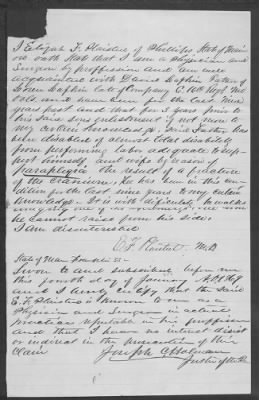 I Elijah F. Plaisted of Phillips State of Maine
on oath state that I am a Physician and
Surgeon by proffession and am well
acquainted with David Laplin Father of
Loren Laplin late of Company C 10th Regt Me
vols and have been for the last nine
years past and that for 3 years prior to
his said sons enlistment if not more to
my certain knowledge the said Father has
been disabled of almost total disability
from performing labor adequate to sup-
port himself and wife by reason of
paraplegia the result of a fracture
of the he has been in this con-
dition for the last nine years to my certain
knowledge - It is with difficulty he walks
using only one of his
he cannot raise from his side.
I am disinterested
E. F. Plaisted M.D.
State of Maine Franklin ss -
Sworn to and subscribed before me
this fourth day of January A.D.
and I hereby certify that the said
E. F. Plaisted is known to me as a
Physician and Surgeon in actual
practice reputable in his proffession
and that I have no interest direct
or indirect in the prosecution of this
claim
Joseph C Holman
Justice of the